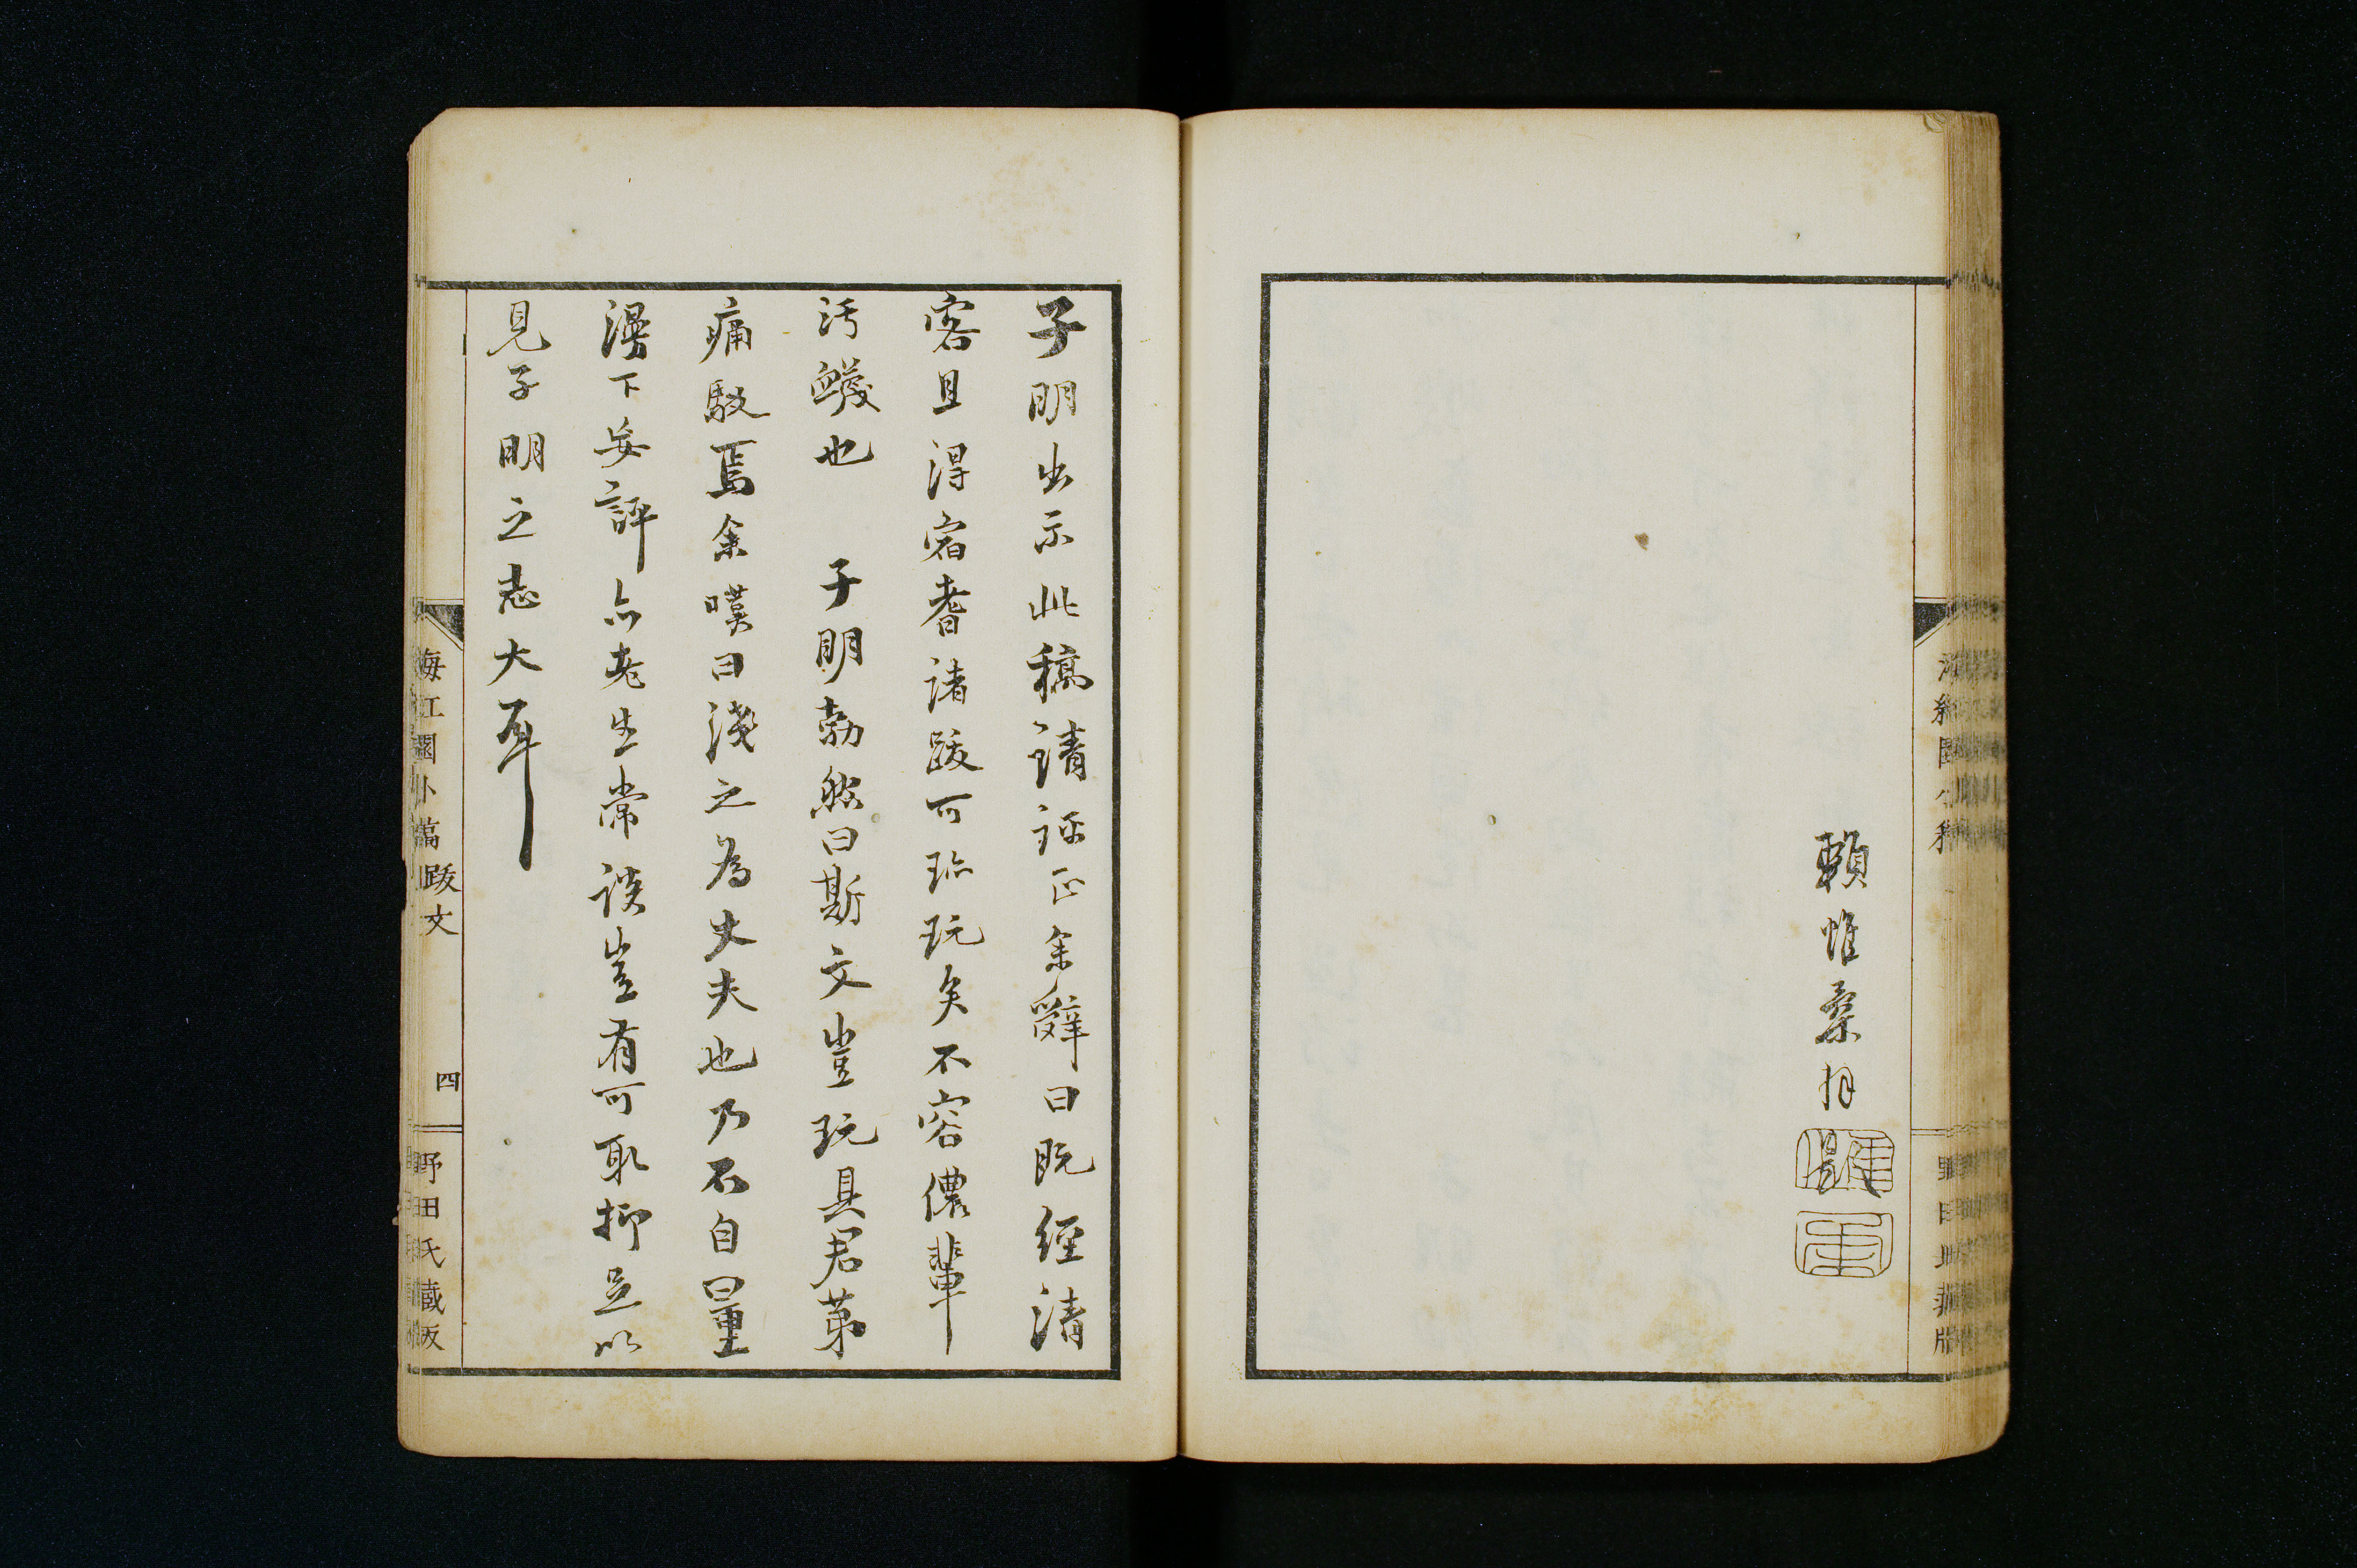 賴惟柔拜
子明出示此稿請評正余辭曰既經清
客且得宿耆諸跋可珎玩矣不容儂輩
汚衊也　子明勃然曰斯文豈玩具君第
痛駁焉余嘆曰淺之為丈夫也乃不自量
漫下妄評亦老生常談豈有可取抑足以
見子明之志大耳
海紅園小稿　跋文　四　野田氏藏版